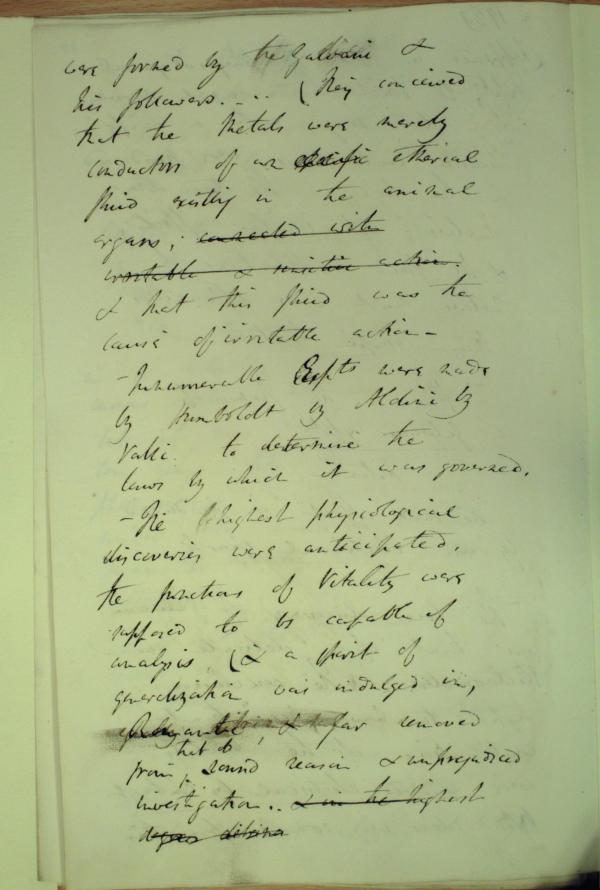 were formed by the Galvani &
his followers. - .. (They conceived
that the Metals were merely
conductors of an etherial
fluid existing in the animal
organs; connected with
irritable & sensitive action.
& that this fluid was the
cause of irritable action -
- Innumerable Expts were made
by Humboldt by Aldini by
Valli. to determine the
laws by which it was governed.
- The highest physiological
discoveries were anticipated.
The functions of Vitality were
supposed to be capable of
analysis, (& a spirit of
generalization was indulged in,
, & far removed
that of
from sound reason & unprejudiced
investigation.. & in the highest
degree